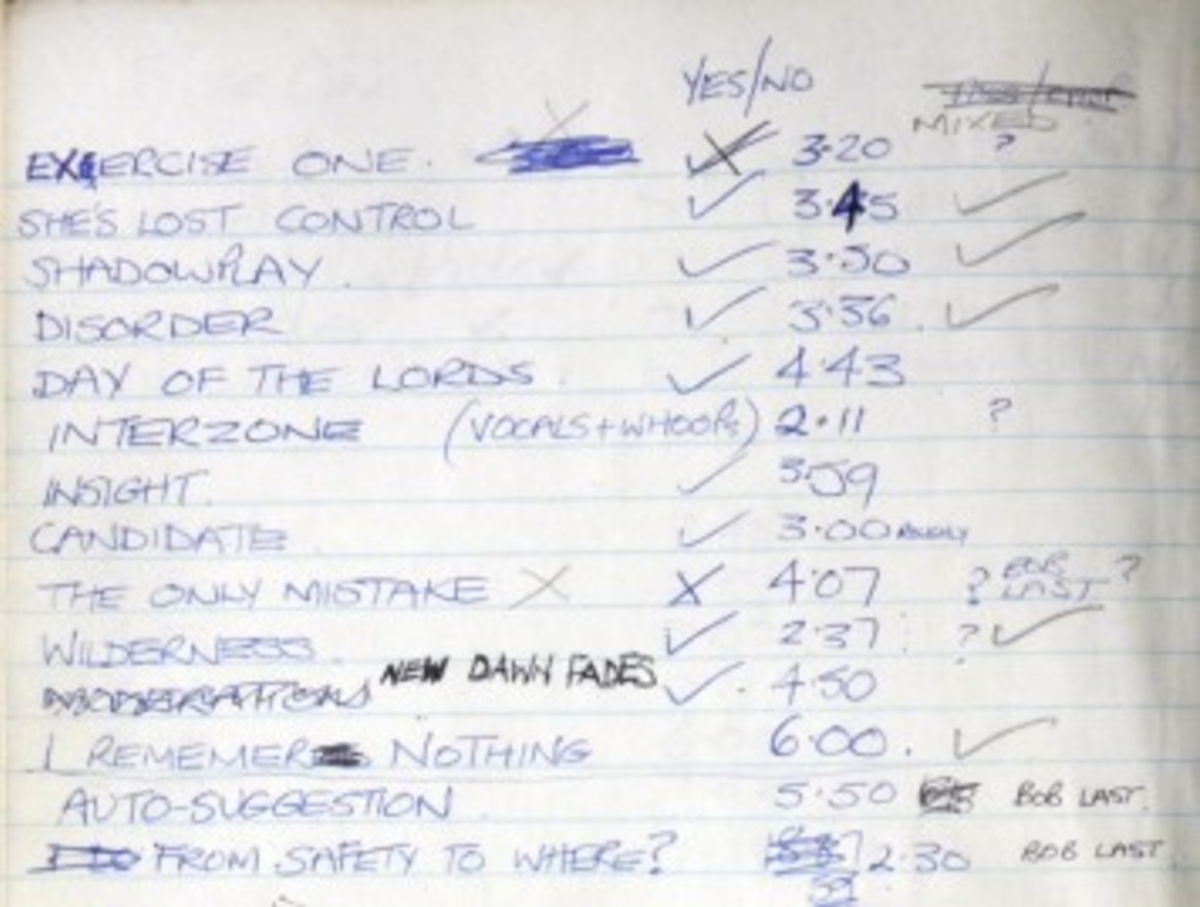 YES/NO
MIXED
EXERCISE ONE. 3·20 ?
SHE'S LOST CONTROL 3·45
SHADOWPLAY. 3·50
DISORDER 3·36
DAY OF THE LORDS. 4·43
INTERZONE (VOCALS+WHOOPS) 2·11 ?
INSIGHT. 3·59
CANDIDATE 3·00
THE ONLY MISTAKE X X 4·07 ? BOB LAST ?
WILDERNESS. 2·37 ?
NEW DAWN FADES 4·50
I REMEMER NOTHING 6·00.
AUTO-SUGGESTION 5·50 BOB LAST.
FROM SAFETY TO WHERE? 2·30 BOB LAST